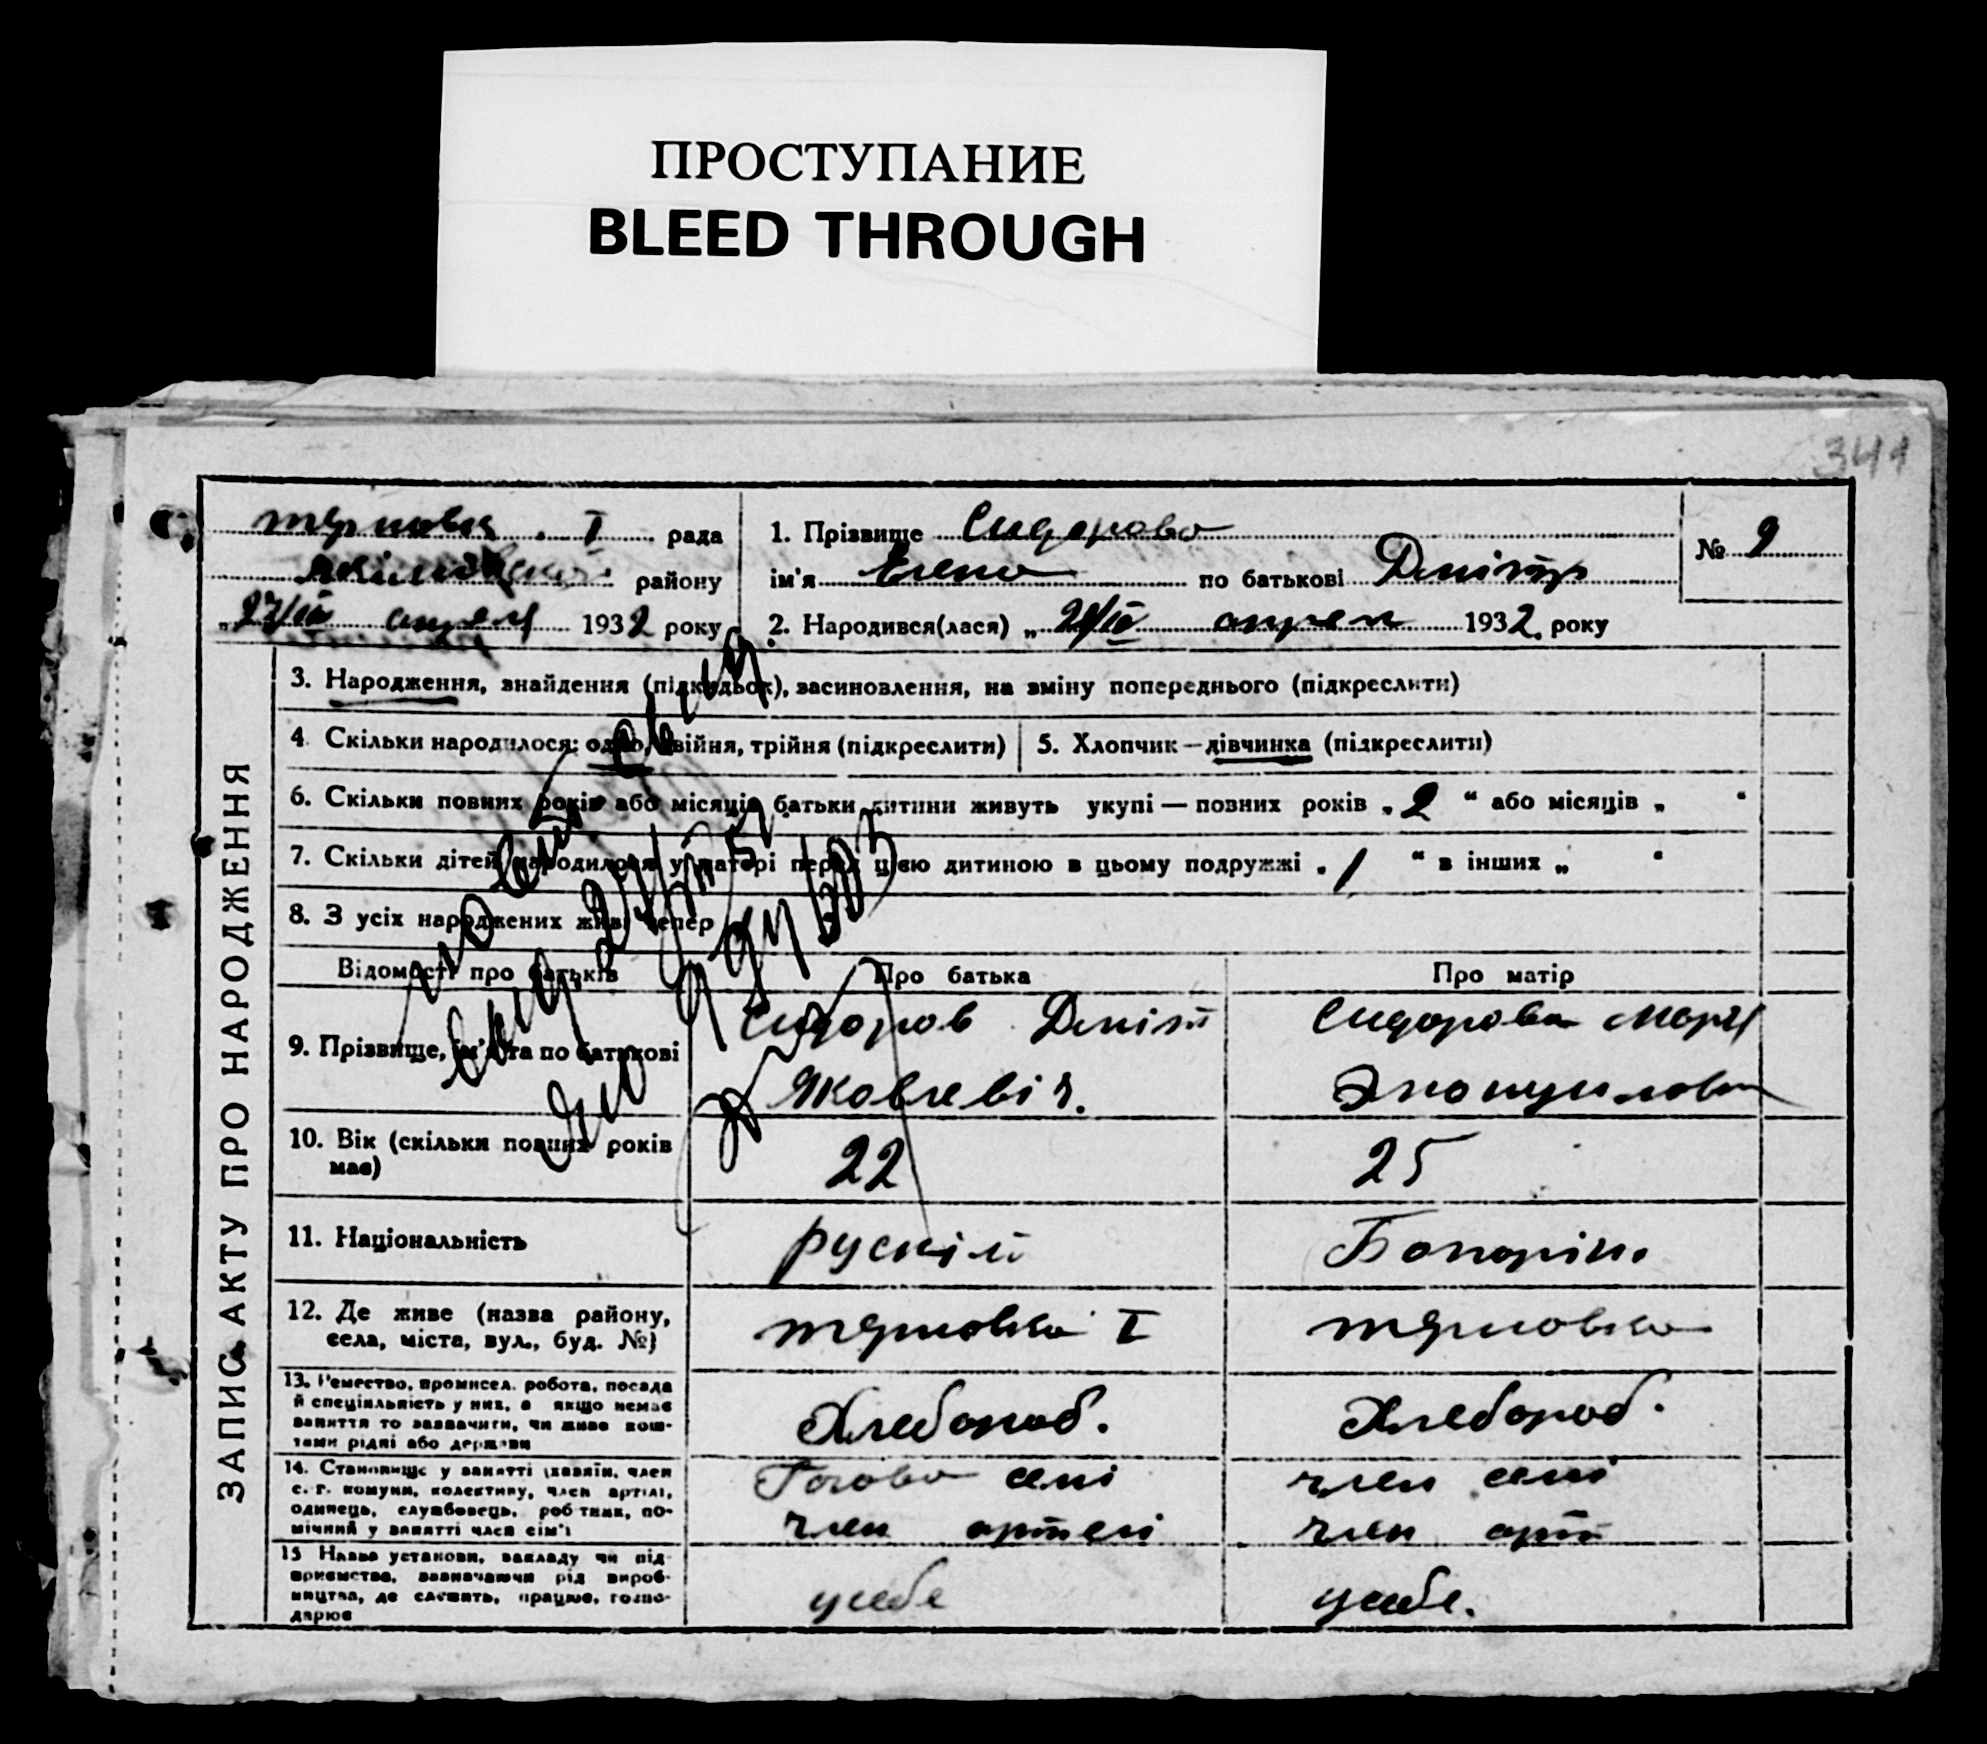 ПРОСТУПАНИЕ
BLEED THROUGH
341
рада
району
апрел 1932 року
1. Прізвище Сидорова
ім'я Елена по батькові Дмітр
№ 9
2. Народився(лася) „ апрел 1932. року
ЗАПИС АКТУ ПРО НАРОДЖЕННЯ
3. Народження, знайдення (підкидьок), засиновлення, на зміну попереднього (підкреслити)
4. Скільки народилося: одно, двійня, трійня (підкреслити)
5. Хлопчик — дівчинка (підкреслити)
6. Скільки повних років або місяців батьки дитини живуть укупі — повних років „ 2 “ або місяців „ “
7. Скільки дітей народилося у матері перед цією дитиною в цьому подружжі „ 1 “ в інших „ “
8. З усіх народжених живі тепер
Відомості про батьків
Про батька
Про матір
9. Прізвище, ім'я та по батькові
Сидоров Дміт
Яковлевіч.
Сидорова Марія
10. Вік (скільки повних років
має)
22
25
11. Національність
рускій
12. Де живе (назва району,
села, міста, вул., буд. №)
13. Ремество, промисел, робота, посада
й спеціяльність у них, а якщо немає
заняття то зазначити, чи живе кош-
тами рідні або держави
Хлебороб.
Хлебороб.
14. Становище у занятті (хазяїн, член
с.-г. комуни, колективу, член артілі,
одинець, службовець, робітник, по-
мічний у занятті член сім'ї
Голова семі
член артелі
член семі
член арт
15 Назва установи, закладу чи під-
приємства, зазначаючи рід вироб-
ництва, де служить, працює, госпо-
дарює
усебе
усебе.